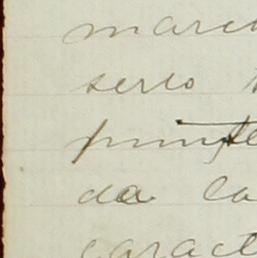 marc
serlo
punte
da la
caract